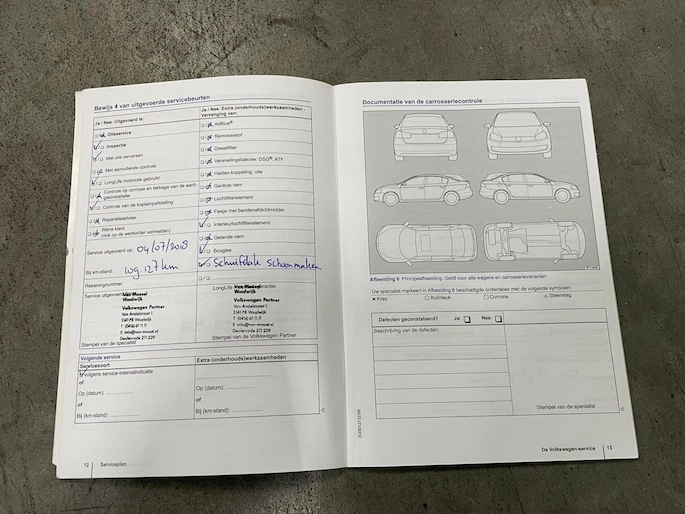 Bewijs 4 van uitgevoerde servicebeurten
Ja / Nee: Uitgevoerd is:
Olieservice
Inspectie
Met olie verversen
Met aanvullende controle
LongLife motorolie gebruikt
Controle op corrosie en lekkage van de aard-
gasinstallatie
Controle van de koplampafstelling
Reparatieadvies
Wens klant
(ook op de werkorder vermelden)
Service uitgevoerd op: 04/07/2018
Bij km-stand:
Rekeningnummer:
Service uitgevoerd
Van Mossel
Waalwijk
Volkswagen Partner
Van Andelstraat 1
5141 PB Waalwijk
T (0416) 67 11 11
E info@van-mossel.nl
Dealercode 211 229
Stempel van de specialist
Ja / Nee: Extra (onderhouds)werkzaamheden -
Vervanging van:
AdBlue®
Remvloeistof
Dieselfilter
Versnellingsbakolie: DSG®, ATF
Haldex-koppeling: olie
Getande riem
Luchtfilterelement
Flesje met bandenafdichtmiddel
Interieurluchtfilterelement
Getande riem
Bougies
Schuifdak schoonmaken
LongLife
Van Mossel
Waalwijk
Volkswagen Partner
Van Andelstraat 1
5141 PB Waalwijk
T (0416) 67 11 11
E info@van-mossel.nl
Dealercode 211 229
Stempel van de Volkswagen Partner
Volgende service
Servicesoort
Extra (onderhouds)werkzaamheden
volgens service-intervalindicatie
of
Op (datum):
of
Bij (km-stand):
Op (datum):
of
Bij (km-stand):
12 Serviceplan
Documentatie van de carrosseriecontrole
Afbeelding 6 Principeafbeelding. Geldt voor alle wagens en carrosserievarianten
Uw specialist markeert in Afbeelding 6 beschadigde onderdelen met de volgende symbolen:
Kras Buil/deuk Corrosie Steenslag
Defecten geconstateerd? Ja: Nee:
Beschrijving van de defecten:
Stempel van de specialist
De Volkswagen-service 13